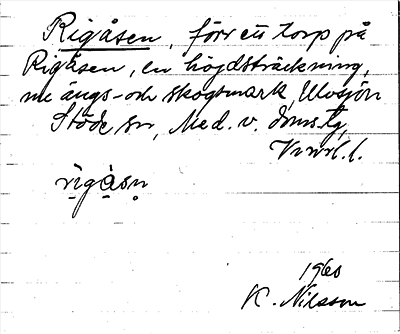 Rigåsen, förr ett torp på
Rigåsen, en höjdsträckning,
nu ängs- och skogsmark, Ulvsjön
Stöde sn, Med. v. doms.
rigåsn
1960
K. Nilsson